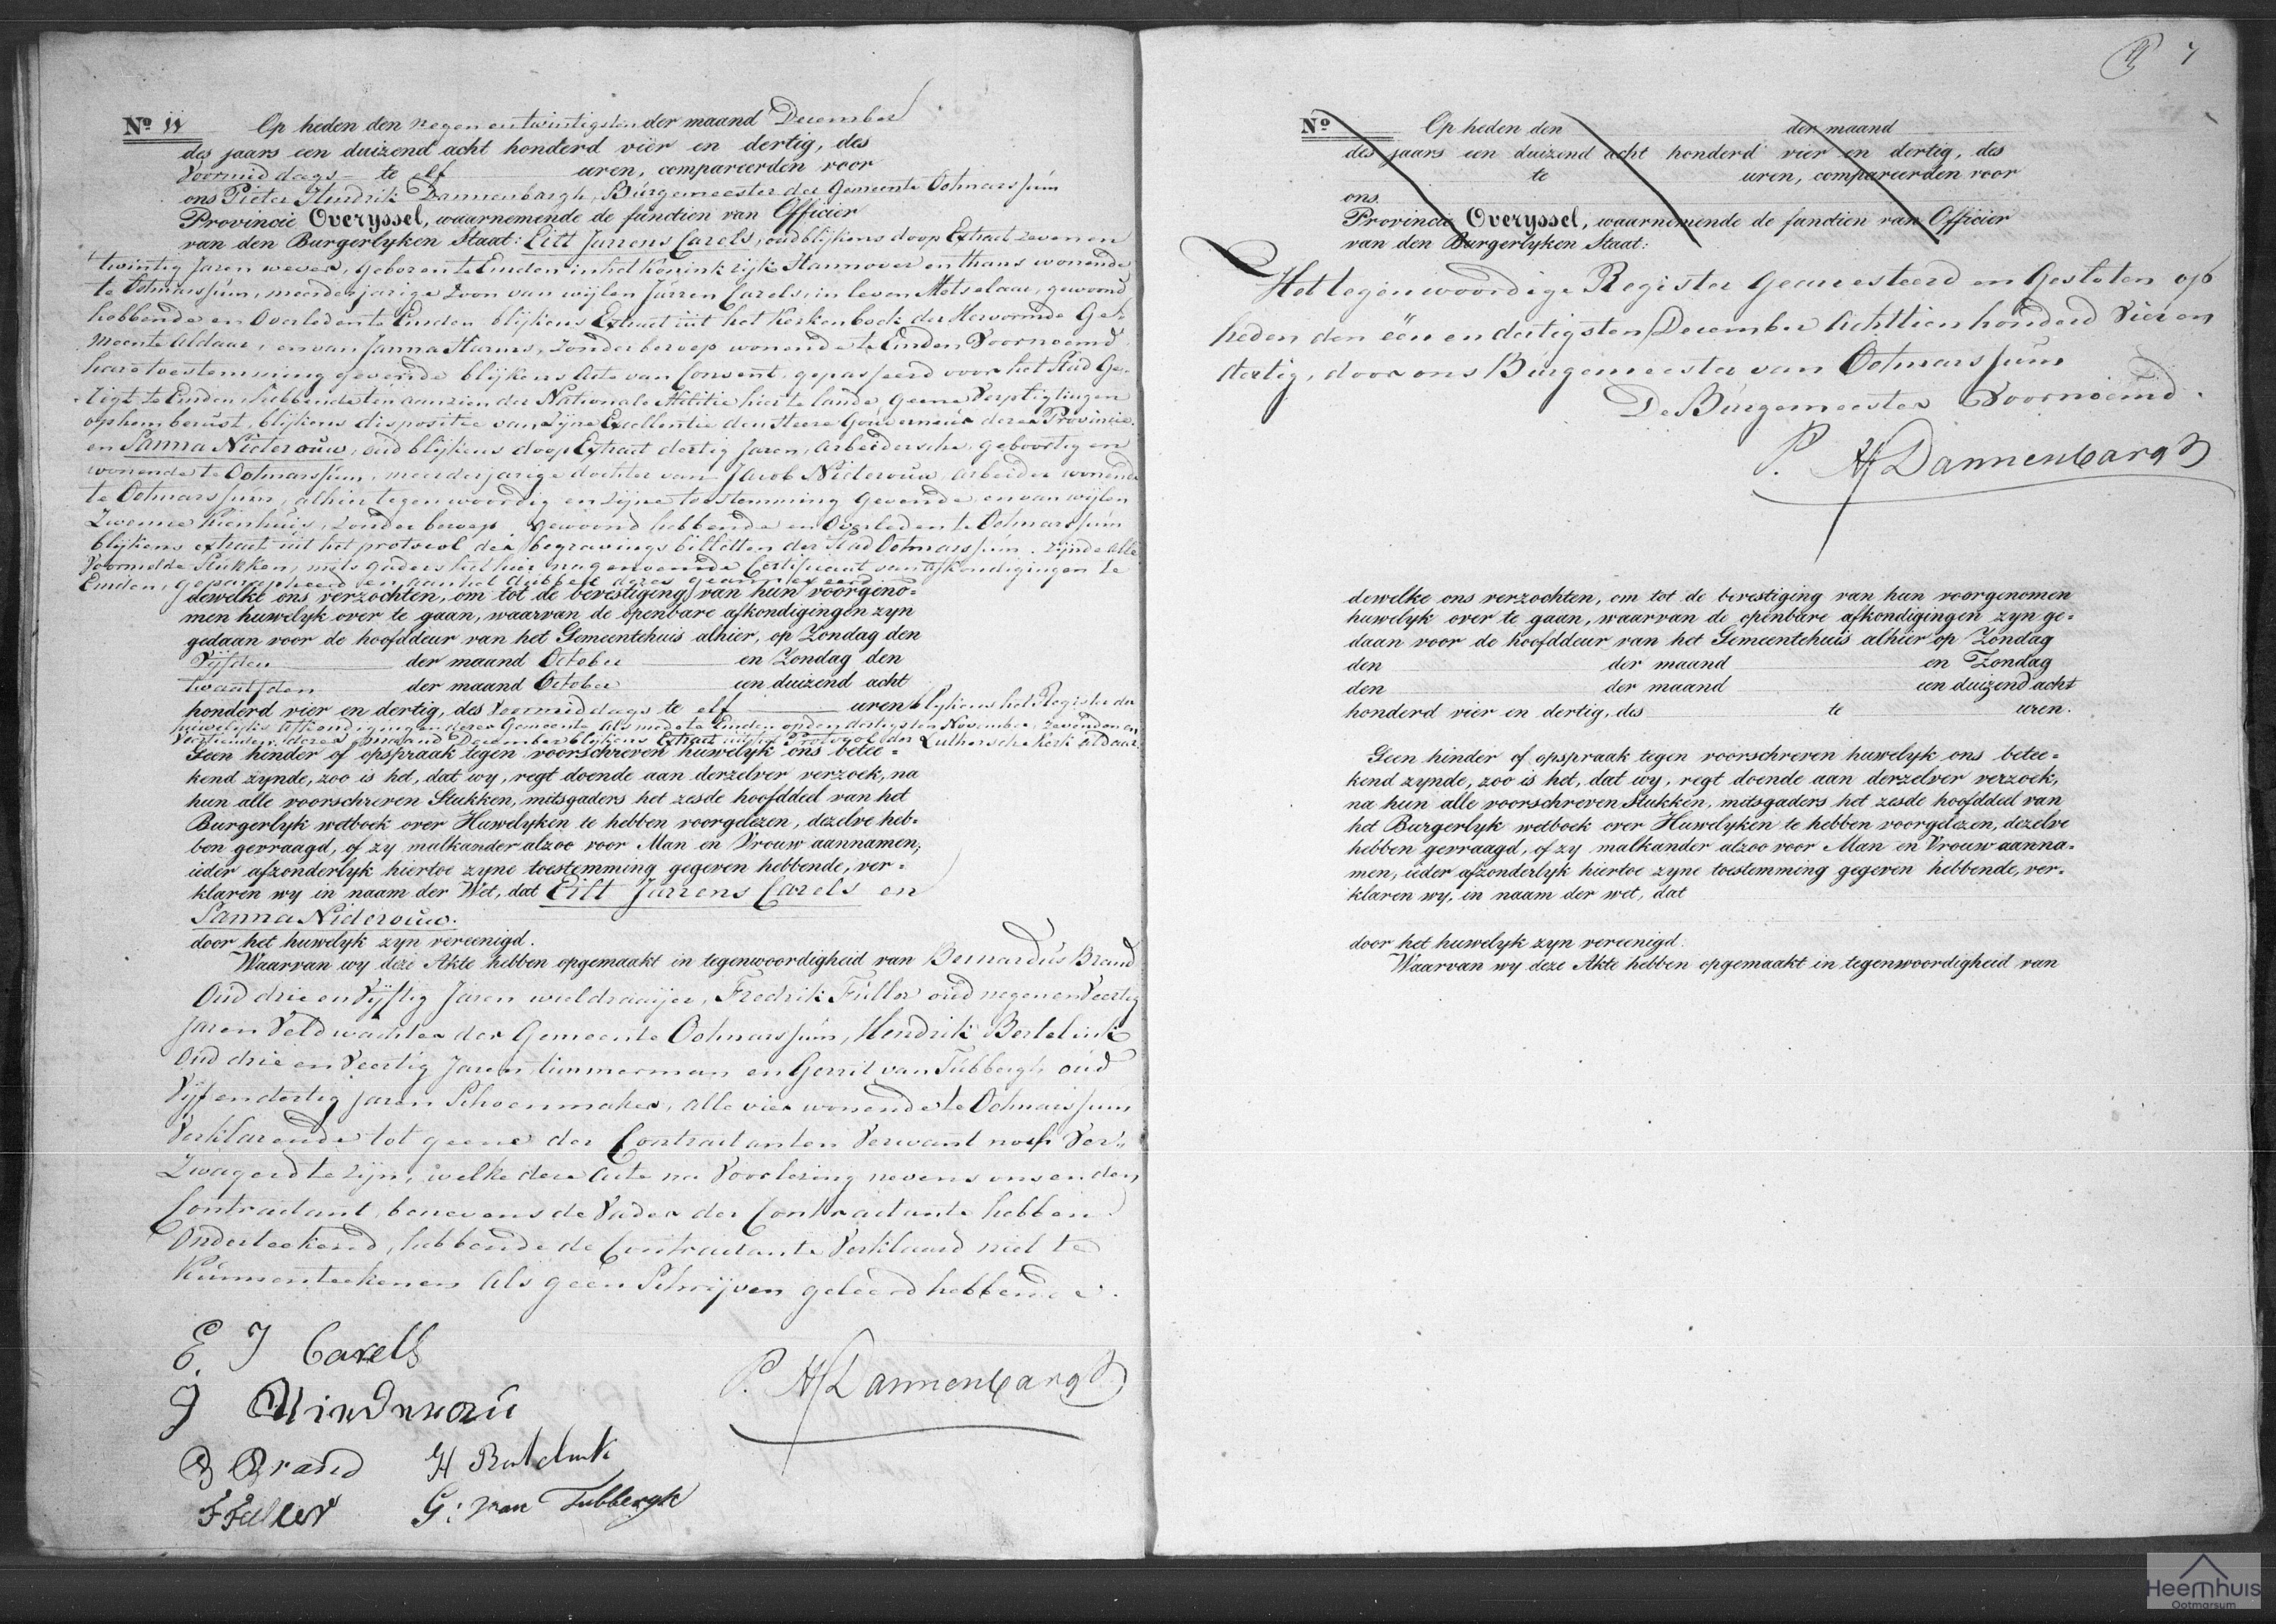 Nº 11 Op heden den negenentwintigsten der maand December
des jaars een duizend acht honderd vier en dertig, des
Voormiddags te elf uren, compareerden voor
ons Pieter Hendrik Dannenbargh, Burgemeester der Gemeente Ootmarssum
Provincie Overyssel, waarnemende de functien van Officier
van den Burgerlyken Staat: Eilt Jurrens Carels, oud blijkens doop Extract zeven en
twintig Jaren wever, geboren te Emden in het Koninkrijk Hannover en thans wonende
te Ootmarssum, meerderjarige Zoon van wijlen Jurren Carels, in leven Metselaar, gewoond
hebbende en Overleden te Emden blijkens Extract uit het Kerkenboek der Hervormde Ge-
meente aldaar, en van Janna Harms, zonder beroep wonende te Emden Voornoemd
hare toestemming gevende blijkens Acte van Consent, gepasseerd voor het Stad Ge-
rigt te Emden hebbende ten aanzien der Nationale Militie hier te lande geene Verpligtingen
op hem berust, blijkens dispositie van Zijne Excellentie den Heere Gouverneur dezer Provincie.
en Sanna Niderouw, oud blijkens doop Extract dertig Jaren, arbeidersche, geboortig en
wonende te Ootmarssum, meerderjarige dochter van Jacob Niderouw, arbeider wonende
te Ootmarssum, alhier tegenwoordig en zijne toestemming gevende, en van wijlen
Zwenne Kienhuis, zonder beroep gewoond hebbende en Overleden te Ootmarssum
blijkens extract uit het protocol der begravings billetten der Stad Ootmarssum. zijnde alle
voormelde Stukken, mits gaders het hier nagenoemde Certificaat van afkondigingen te
Emden, geparapheerd en aan het dubbel dezes geannexeerd
dewelke ons verzochten, om tot de bevestiging van hun voorgeno-
men huwelyk over te gaan, waarvan de openbare afkondigingen zyn
gedaan voor de hoofddeur van het Gemeentehuis alhier, op Zondag den
Vijfden der maand October en Zondag den
twaalfden der maand October een duizend acht
honderd vier en dertig, des Voormiddags te elf uren blijkens het Register der
huwelijks afkondigingen dezer Gemeente als mede te Emden op den dertigsten November, zevenden en
veertienden dezer maand December blijkens Extract uit het Protocol der Luthersche Kerk aldaar
Geen hinder of opspraak tegen voorschreven huwelyk ons betee-
kend zynde, zoo is het, dat wy, regt doende aan derzelver verzoek, na
hun alle voorschreven Stukken, mitsgaders het zesde hoofddeel van het
Burgerlyk wetboek over Huwelyken te hebben voorgelezen, dezelve heb-
ben gevraagd, of zy malkander alzoo voor Man en Vrouw aannamen,
ieder afzonderlyk hiertoe zyne toestemming gegeven hebbende, ver-
klaren wy in naam der Wet, dat Eilt Jurrens Carels en
Sanna Niderouw.
door het huwelyk zyn vereenigd.
Waarvan wy deze Akte hebben opgemaakt in tegenwoordigheid van Bernardus Brand
Oud drie en Vijftig Jaren wieldraaijer, Fredrik Fuller oud negen en Veertig
Jaren Veldwachter der Gemeente Ootmarssum, Hendrik Bertelink
Oud drie en Veertig Jaren timmerman en Gerrit van Tubbergh oud
Vijf en dertig jaren Schoenmaker, alle vier wonende te Ootmarssum
Verklarende tot geene der Contractanten Verwant noch Ver-
Zwagerd te zijn, welke deze Acte na Voorlezing nevens ons en den
Contractant, benevens de Vader der Contractante hebben
Onderteekend, hebbende de Contractante Verklaard niet te
Kunnen teekenen als geen Schrijven geleerd hebbende.
E. J Carells
P. H Dannenbargh
J Niederouw
B Brand H Bertelink
F Fuller G: van Tubbergh
7
Nº Op heden den der maand
des jaars een duizend acht honderd vier en dertig, des
te uren, compareerden voor
ons
Provincie Overyssel, waarnemende de functien van Officier
van den Burgerlyken Staat:
Het tegenwoordige Register Gearresteerd en Gesloten op
heden den één en dertigsten December Achttien honderd Vier en
dertig, door ons Burgemeester van Ootmarssum
De Burgemeester Voornoemd.
P. H Dannenbargh
dewelke ons verzochten, om tot de bevestiging van hun voorgenomen
huwelyk over te gaan, waarvan de openbare afkondigingen zyn ge-
daan voor de hoofddeur van het Gemeentehuis alhier op Zondag
den der maand en Zondag
den der maand een duizend acht
honderd vier en dertig, des te uren.
Geen hinder of opspraak tegen voorschreven huwelyk ons betee-
kend zynde, zoo is het, dat wy, regt doende aan derzelver verzoek,
na hun alle voorschreven Stukken, mitsgaders het zesde hoofddeel van
het Burgerlyk wetboek over Huwelyken te hebben voorgelezen, dezelve
hebben gevraagd, of zy malkander alzoo voor Man en Vrouw aanna-
men, ieder afzonderlyk hiertoe zyne toestemming gegeven hebbende, ver-
klaren wy, in naam der wet, dat
door het huwelyk zyn vereenigd.
Waarvan wy deze Akte hebben opgemaakt in tegenwoordigheid van
Heemhuis
Ootmarsum